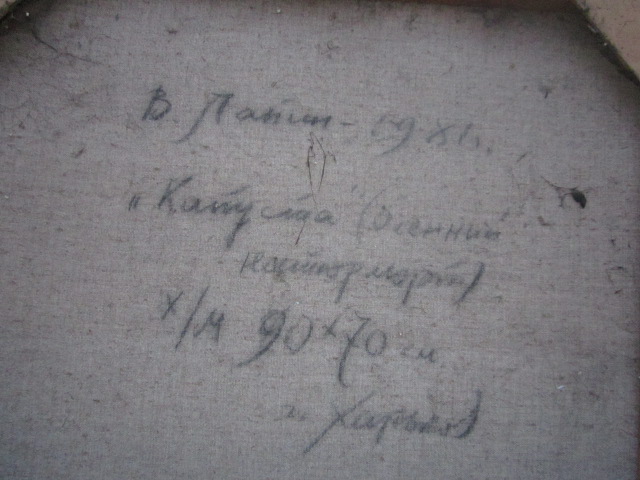 В. Лапин - 59
"Капуста" (Осенний
натюрморт)
х/м 90х70 см
г. Харьков